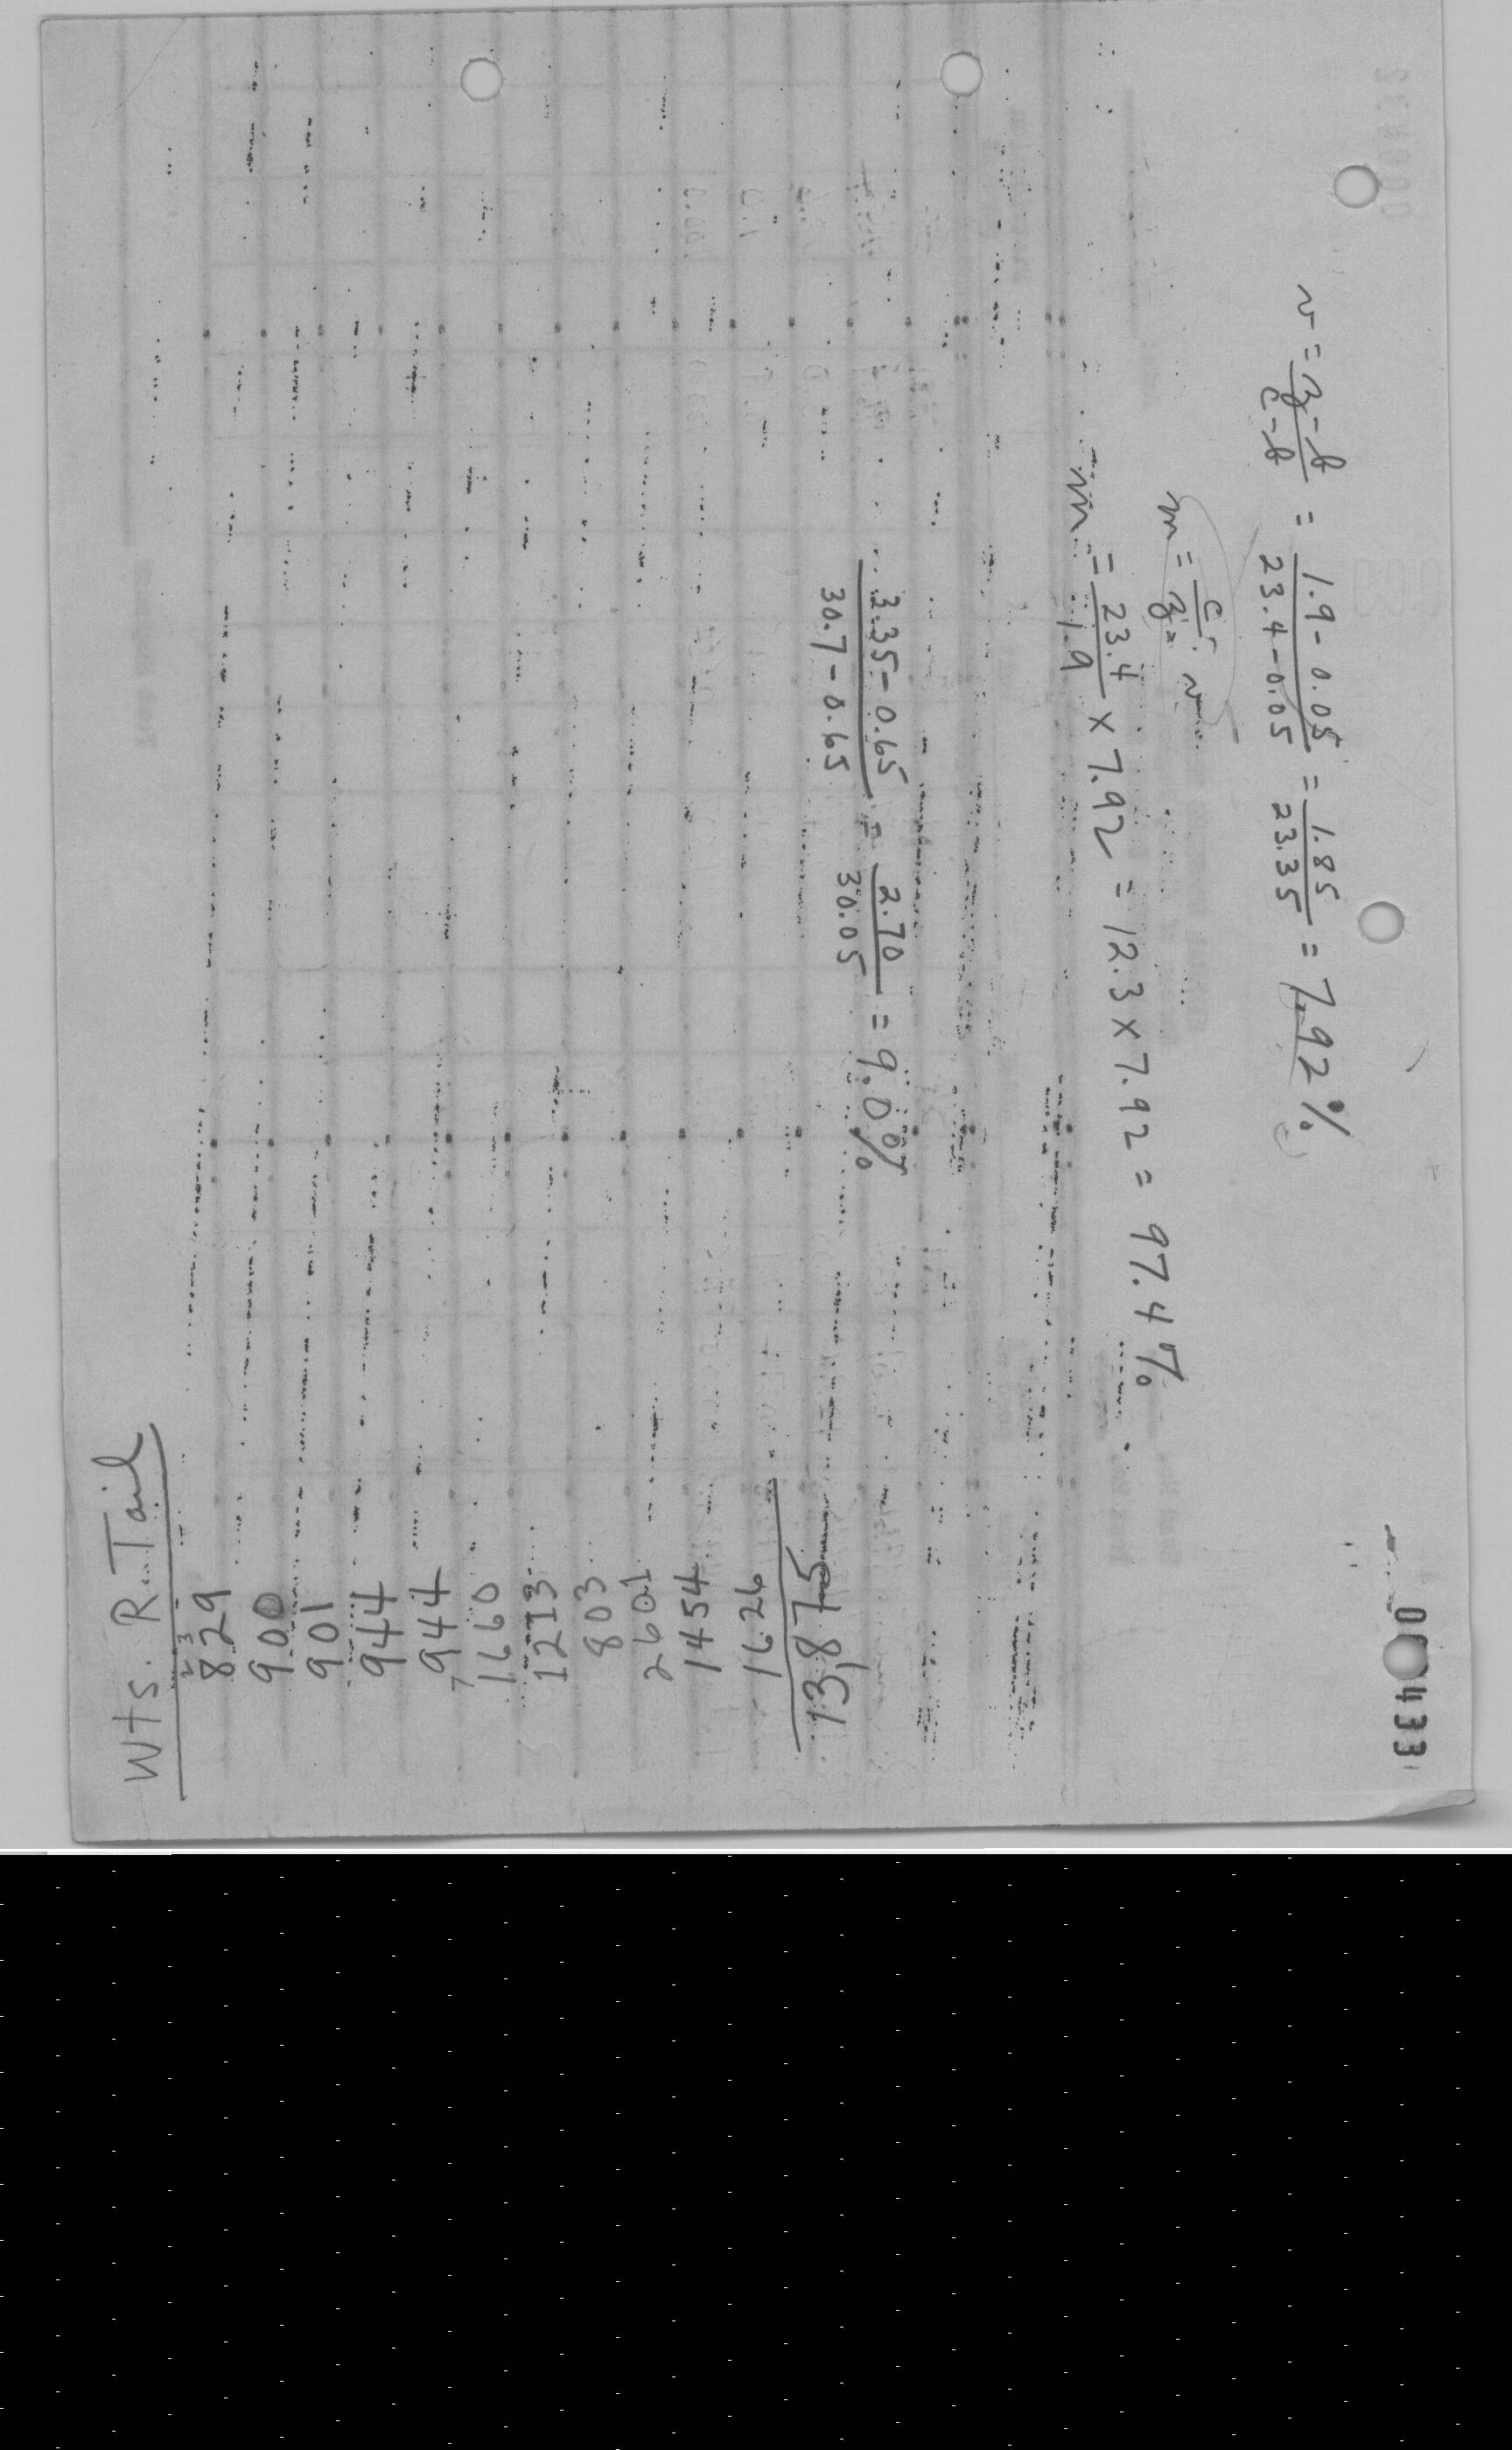 r = z - b / c - b = 1.9 - 0.05 / 23.4 - 0.05 = 1.85 / 23.35 = 7.92 %
m = c / z · r
m = 23.4 / 1.9 x 7.92 = 12.3 x 7.92 = 97.4 %
3.35 - 0.65 / 30.7 - 0.65 = 2.70 / 30.05 = 9.0 %
Wts. R. Tail
829
900
901
944
944
1660
1213
803
2601
1454
1626
13,875
433